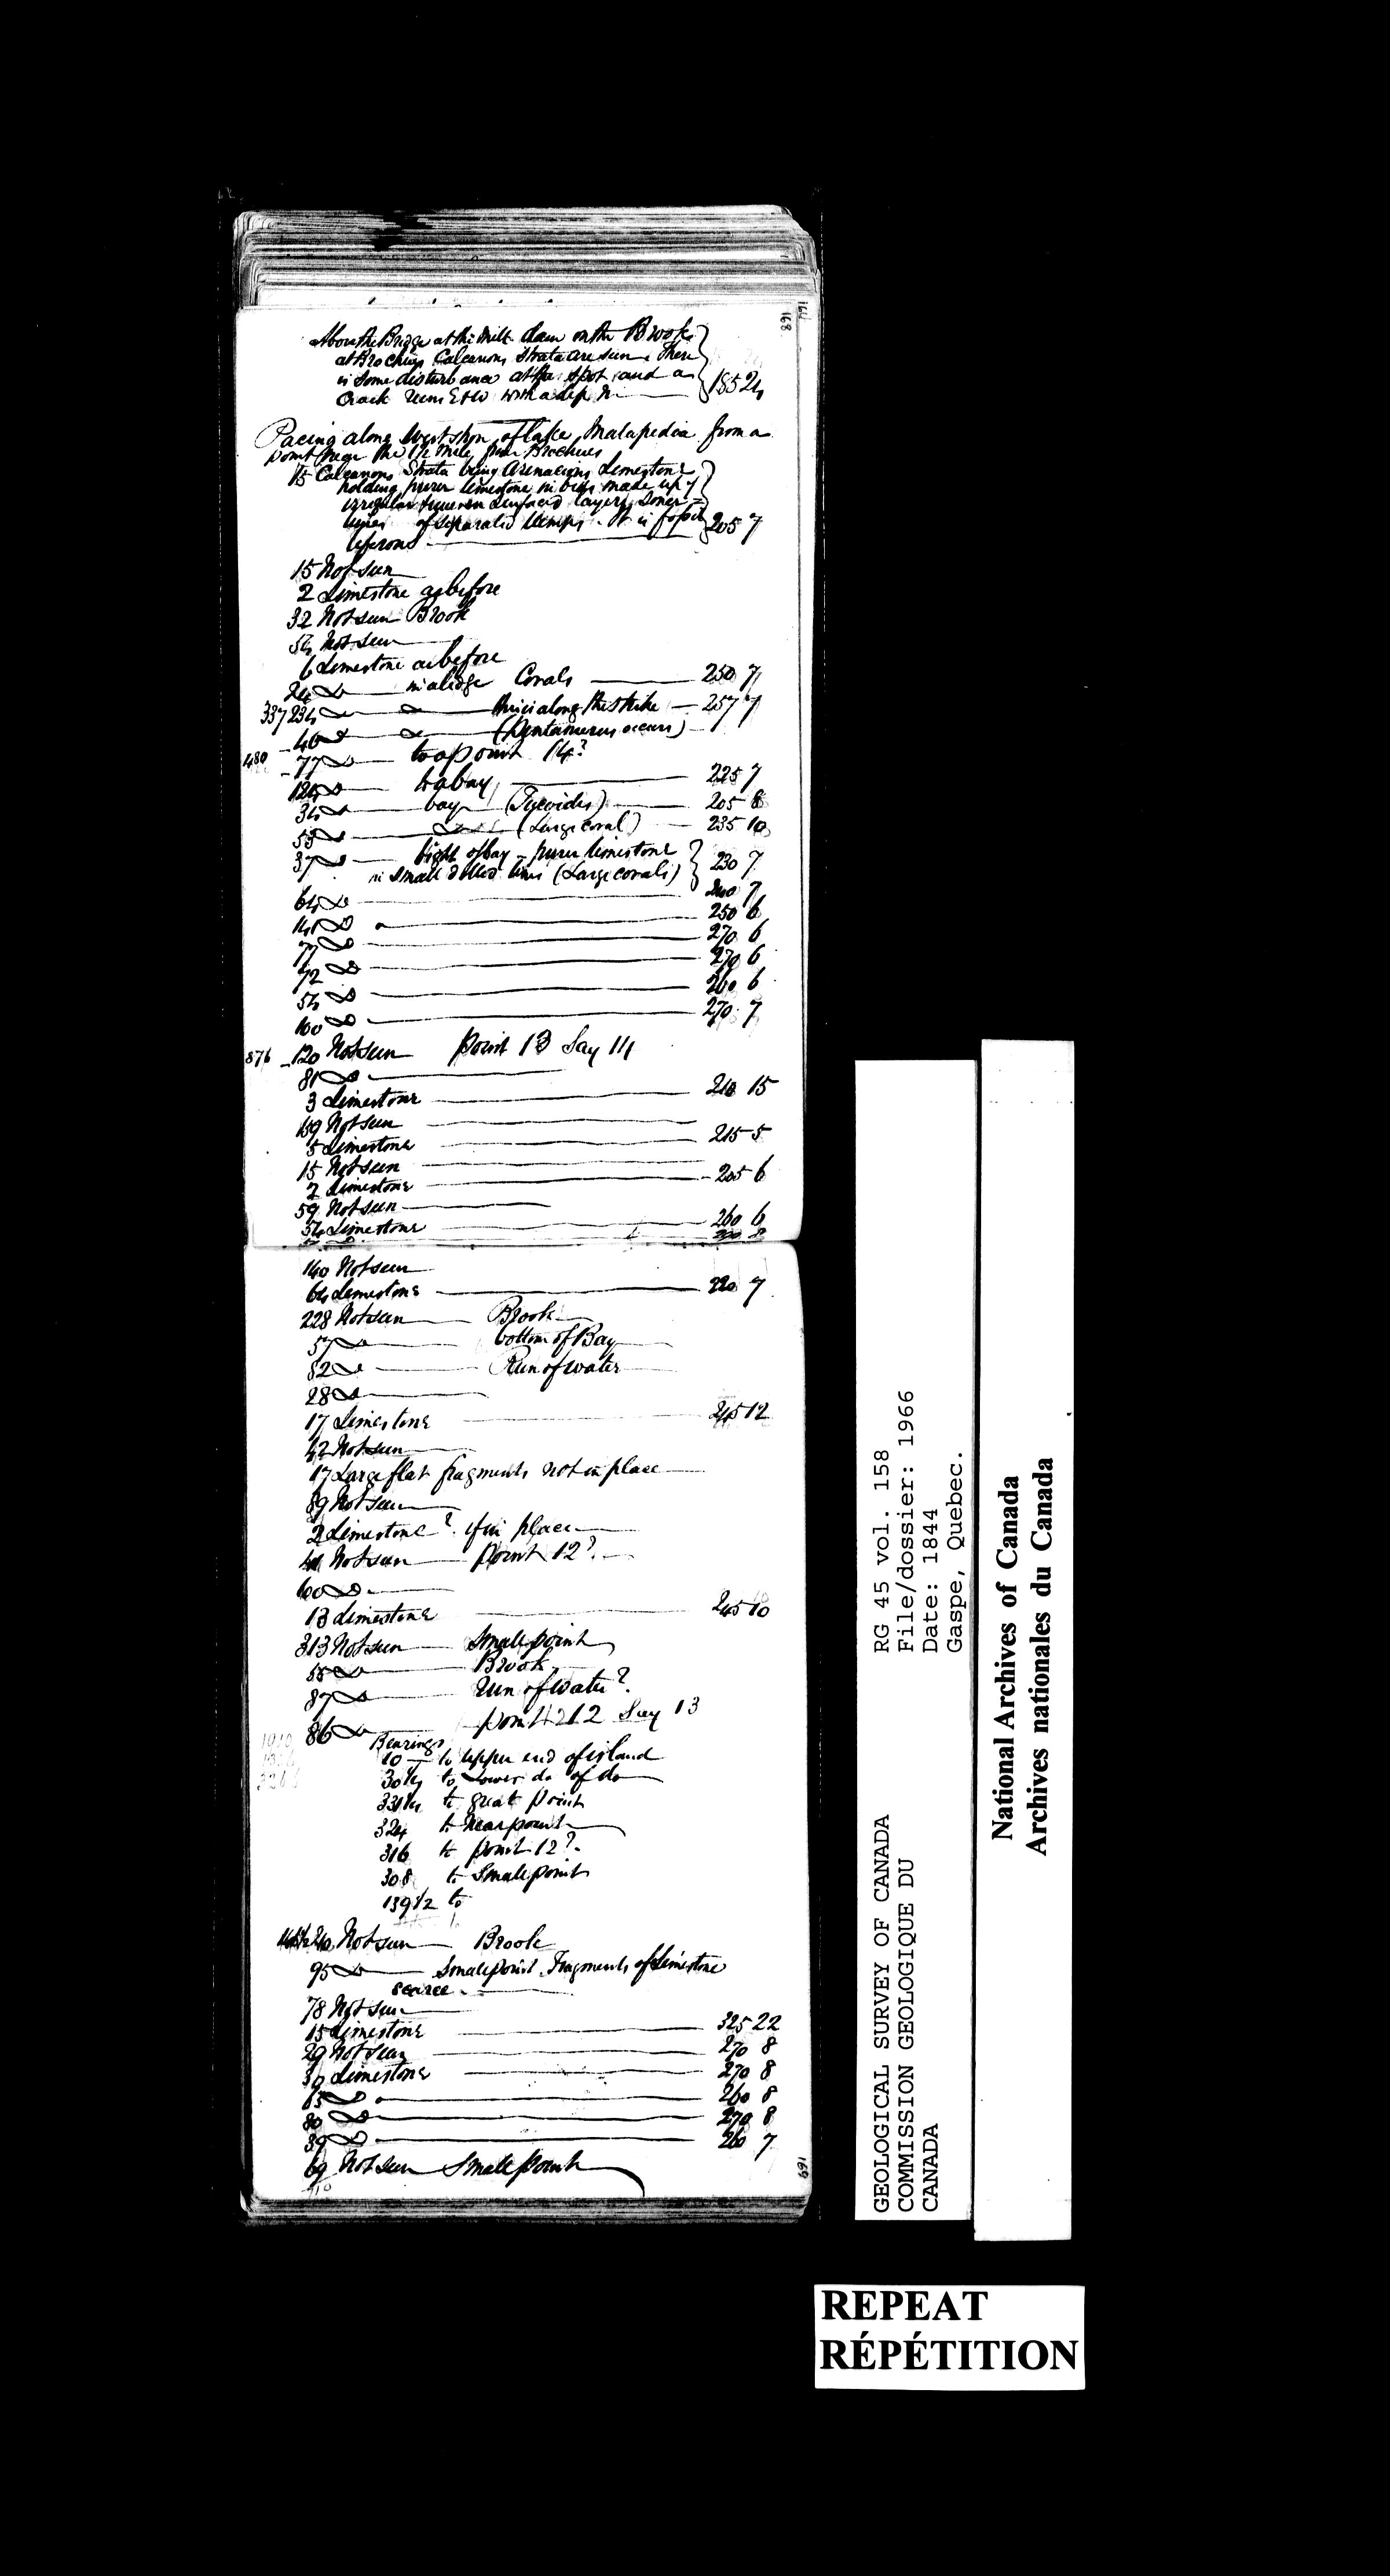 168
Above the Bridge at the Mill dam on the Brook
at Brochus Calcareous Strata are seen. There
is some disturbance at the spot and a
Crack runs E & W with a dip N 185 24
Pacing along West shore of Lake Matapedia from a
point near the 1/2 mile from Brochus
15 Calcareous Strata being Arenaceous Limestone
holding purer limestone in beds made up of
irregular uneven surfaced layers some=
times of separated lumps. It is fossil
iferous 205 7
15 Not seen
2 Limestone as before
32 Not seen Brook
54 Not seen
6 Limestone as before
24 Do in a ledge Corals 250 7
337 234 Do Do along the strike 257 7
40 Do Do (Pentamerus occurs)
480 77 Do to a point 14?
124 Do to a bay 225 7
34 Do bay 205 8
53 Do Do (Large coral) 235 10
37 Do bight of bay – purer limestone
in small lines (Large corals) 230 7
64 Do 240 7
141 Do 250 6
77 Do 270 6
72 Do 270 6
54 Do 260 6
100 Do 270 7
876 120 Not seen point 13 Say 14
81 Do
3 Limestone 210 15
159 Not seen
5 Limestone 215 5
15 Not seen
2 Limestone 205 6
59 Not seen
54 Limestone 260 6
140 Not seen
64 Limestone 220 7
228 Not seen Brook
57 Do bottom of Bay
82 Do Run of water
28 Do
17 Limestone 245 12
42 Not seen
17 Large flat fragments not in place
89 Not seen
2 Limestone? if in place
41 Not seen Point 12?
60 Do
13 Limestone 245 10
313 Not seen Small point
55 Do Brook
87 Do Run of water?
86 Do point 12 Say 13
Bearings
10 to upper end of island
30 1/2 to Lower do of do
331 1/2 to great point
324 to Near point
316 to point 12?
308 to Small point
139 1/2 to
Not seen Brook
95 Do Small point Fragments of Limestone
scarce
78 Not seen
15 Limestone 325 22
29 Not seen 270 8
30 Limestone 270 8
65 Do 260 8
80 Do 270 8
39 Do 260 7
69 Not seen Small point
169
GEOLOGICAL SURVEY OF CANADA
COMMISSION GEOLOGIQUE DU
CANADA
RG 45 vol. 158
File/dossier: 1966
Date: 1844
Gaspe, Quebec.
National Archives of Canada
Archives nationales du Canada
REPEAT
RÉPÉTITION